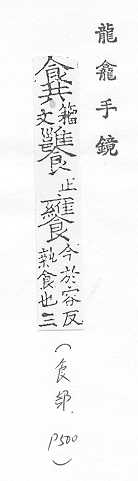 龍龕手鏡
籀文正饔今於容反熟食也三
(食部 P500)